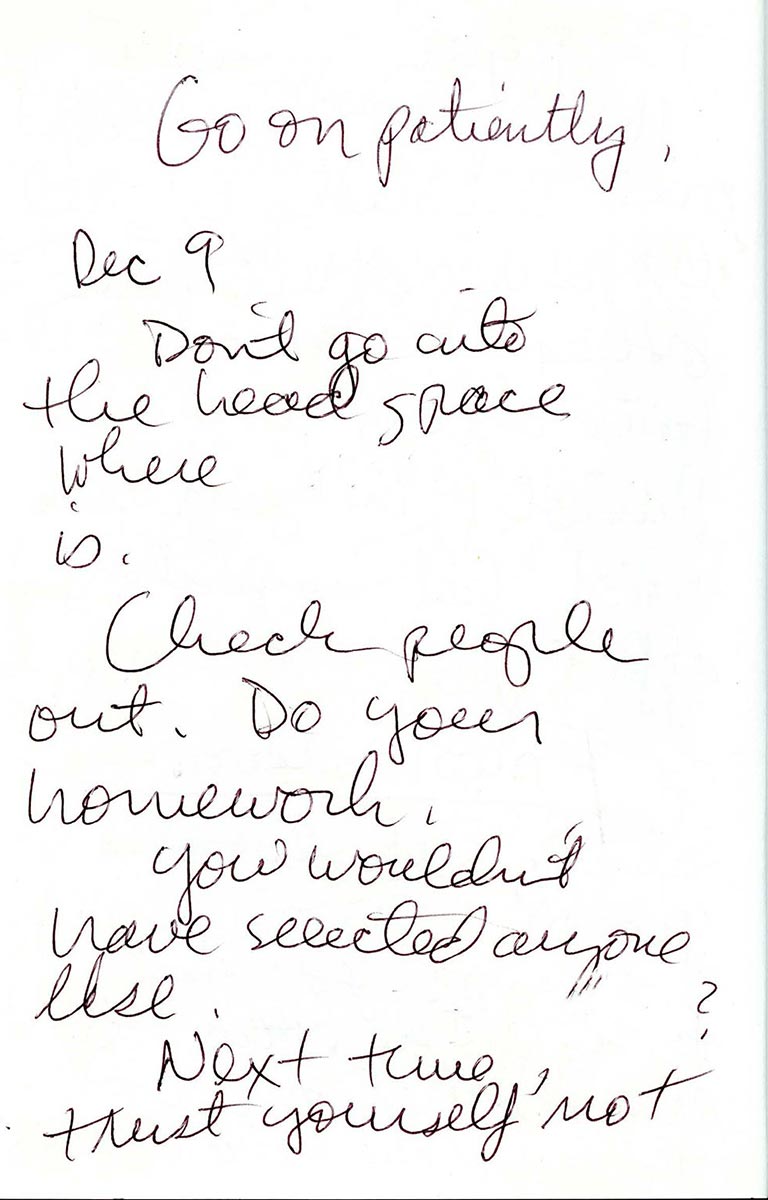 Go on patiently.
Dec 9
Don't go into
the head space
where
is.
Check people
out. Do your
homework.
You wouldn't
have selected anyone
else. ?
Next time,
trust yourself not